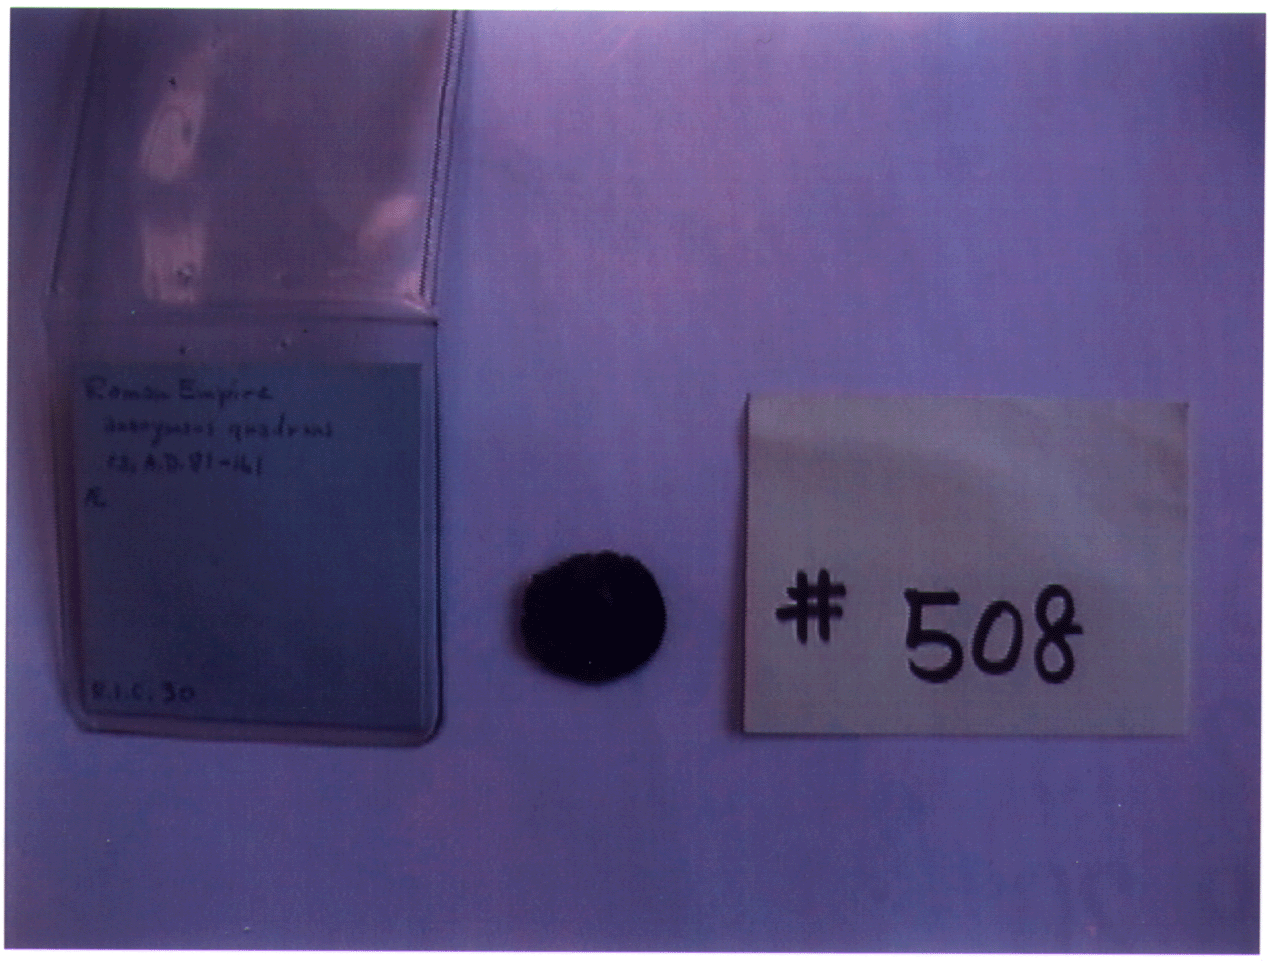 Roman Empire
anonymous quadrans
ca. A.D. 81-161
Æ
R.I.C. 30
# 508